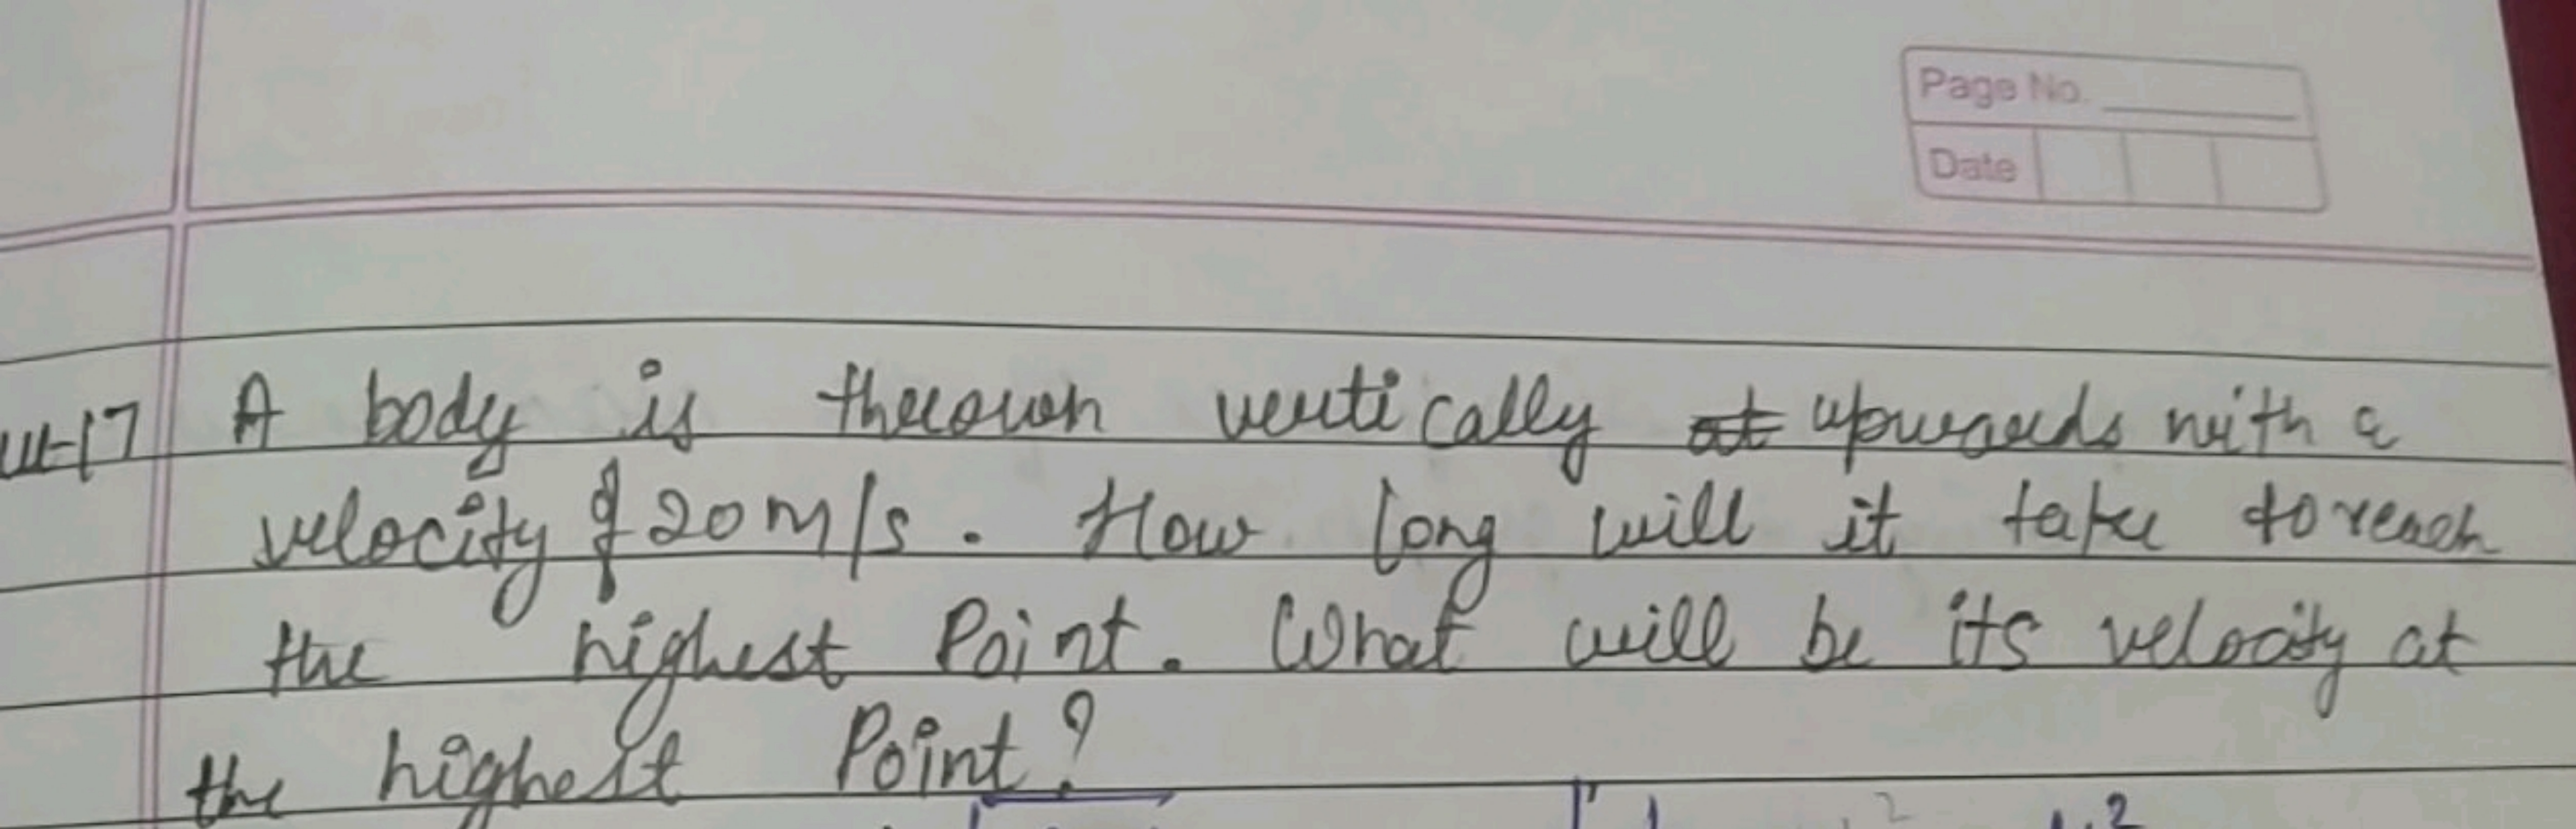 Page No.
Date
17 A body is thrown vertically at upwards with a
velocity of 20 m/s. How long will it take to reach
the highest Point. What will be its velocity at
the highest Point?